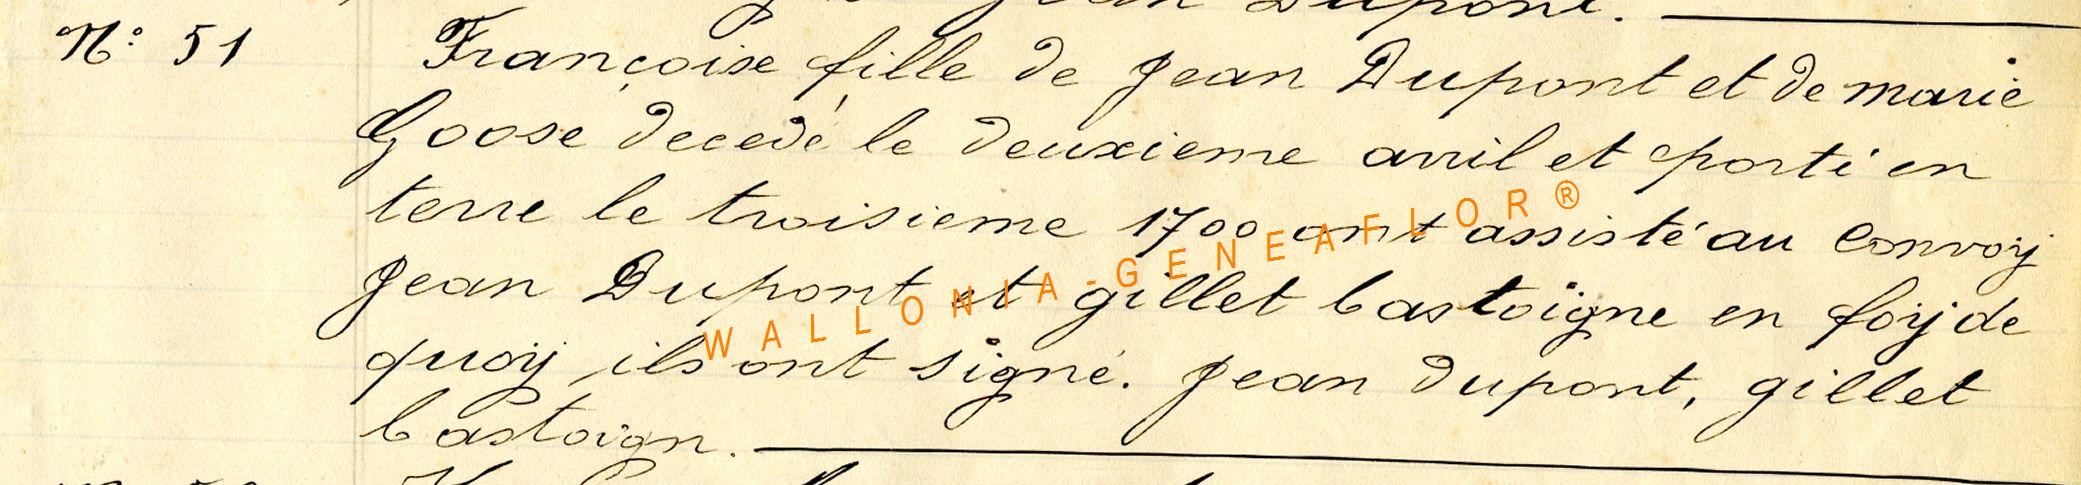 Jean Dupont.
N: 51 Françoise fille de Jean Dupont et de marie
Goose decedé le deuxieme avril et porté en
terre le troisieme 1700 ont assisté au convoÿ
Jean Dupont et gillet bastoigne en foÿ de
quoÿ ils ont signé. Jean dupont, gillet
bastoign.
WALLONIA-GENEAFLOR®